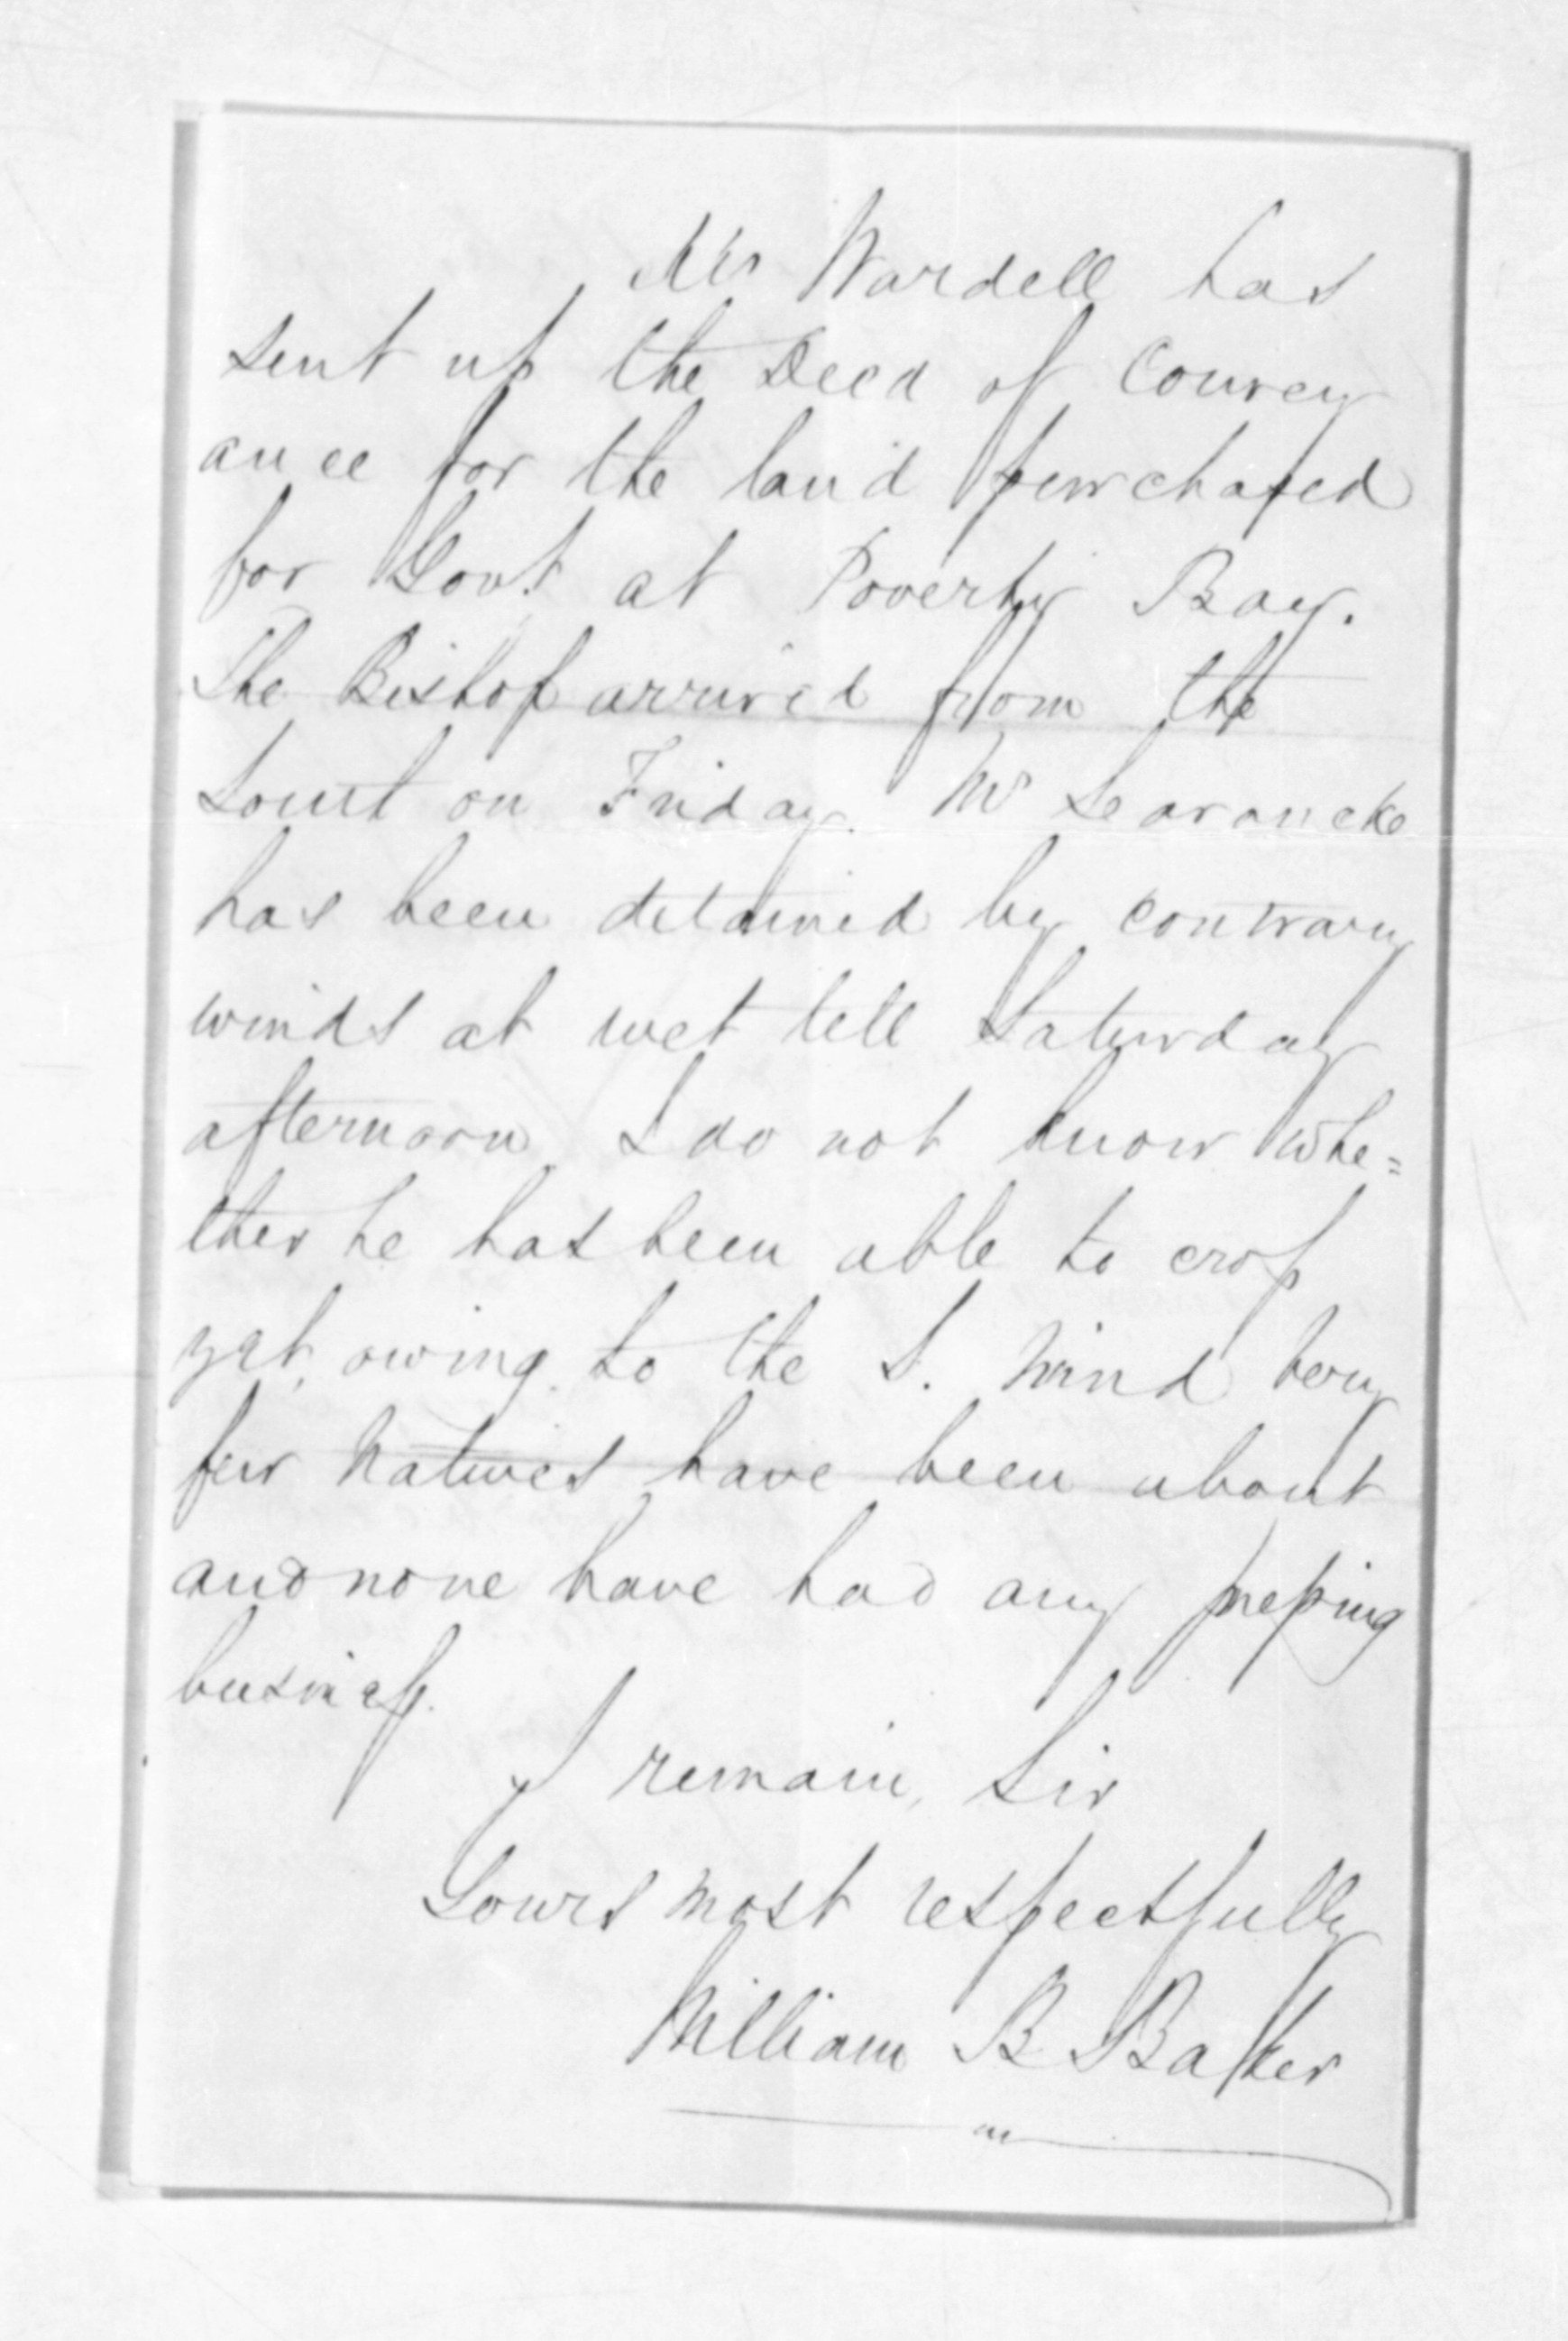 Mr Wardell has
sent up the Deed of Convey
ance for the land purchased
for Govt at Poverty Bay.
The Bishop arrived from the
South on Friday. Mr Searancke
has been detained by contrary
winds at last till Saturday
afternoon I do not know whe=
ther he has been able to crop
yet, owing to the S. Wind very
few Natives have been about
and none have had any pressing
business.
I remain, Sir
Yours most respectfully
William B Baker